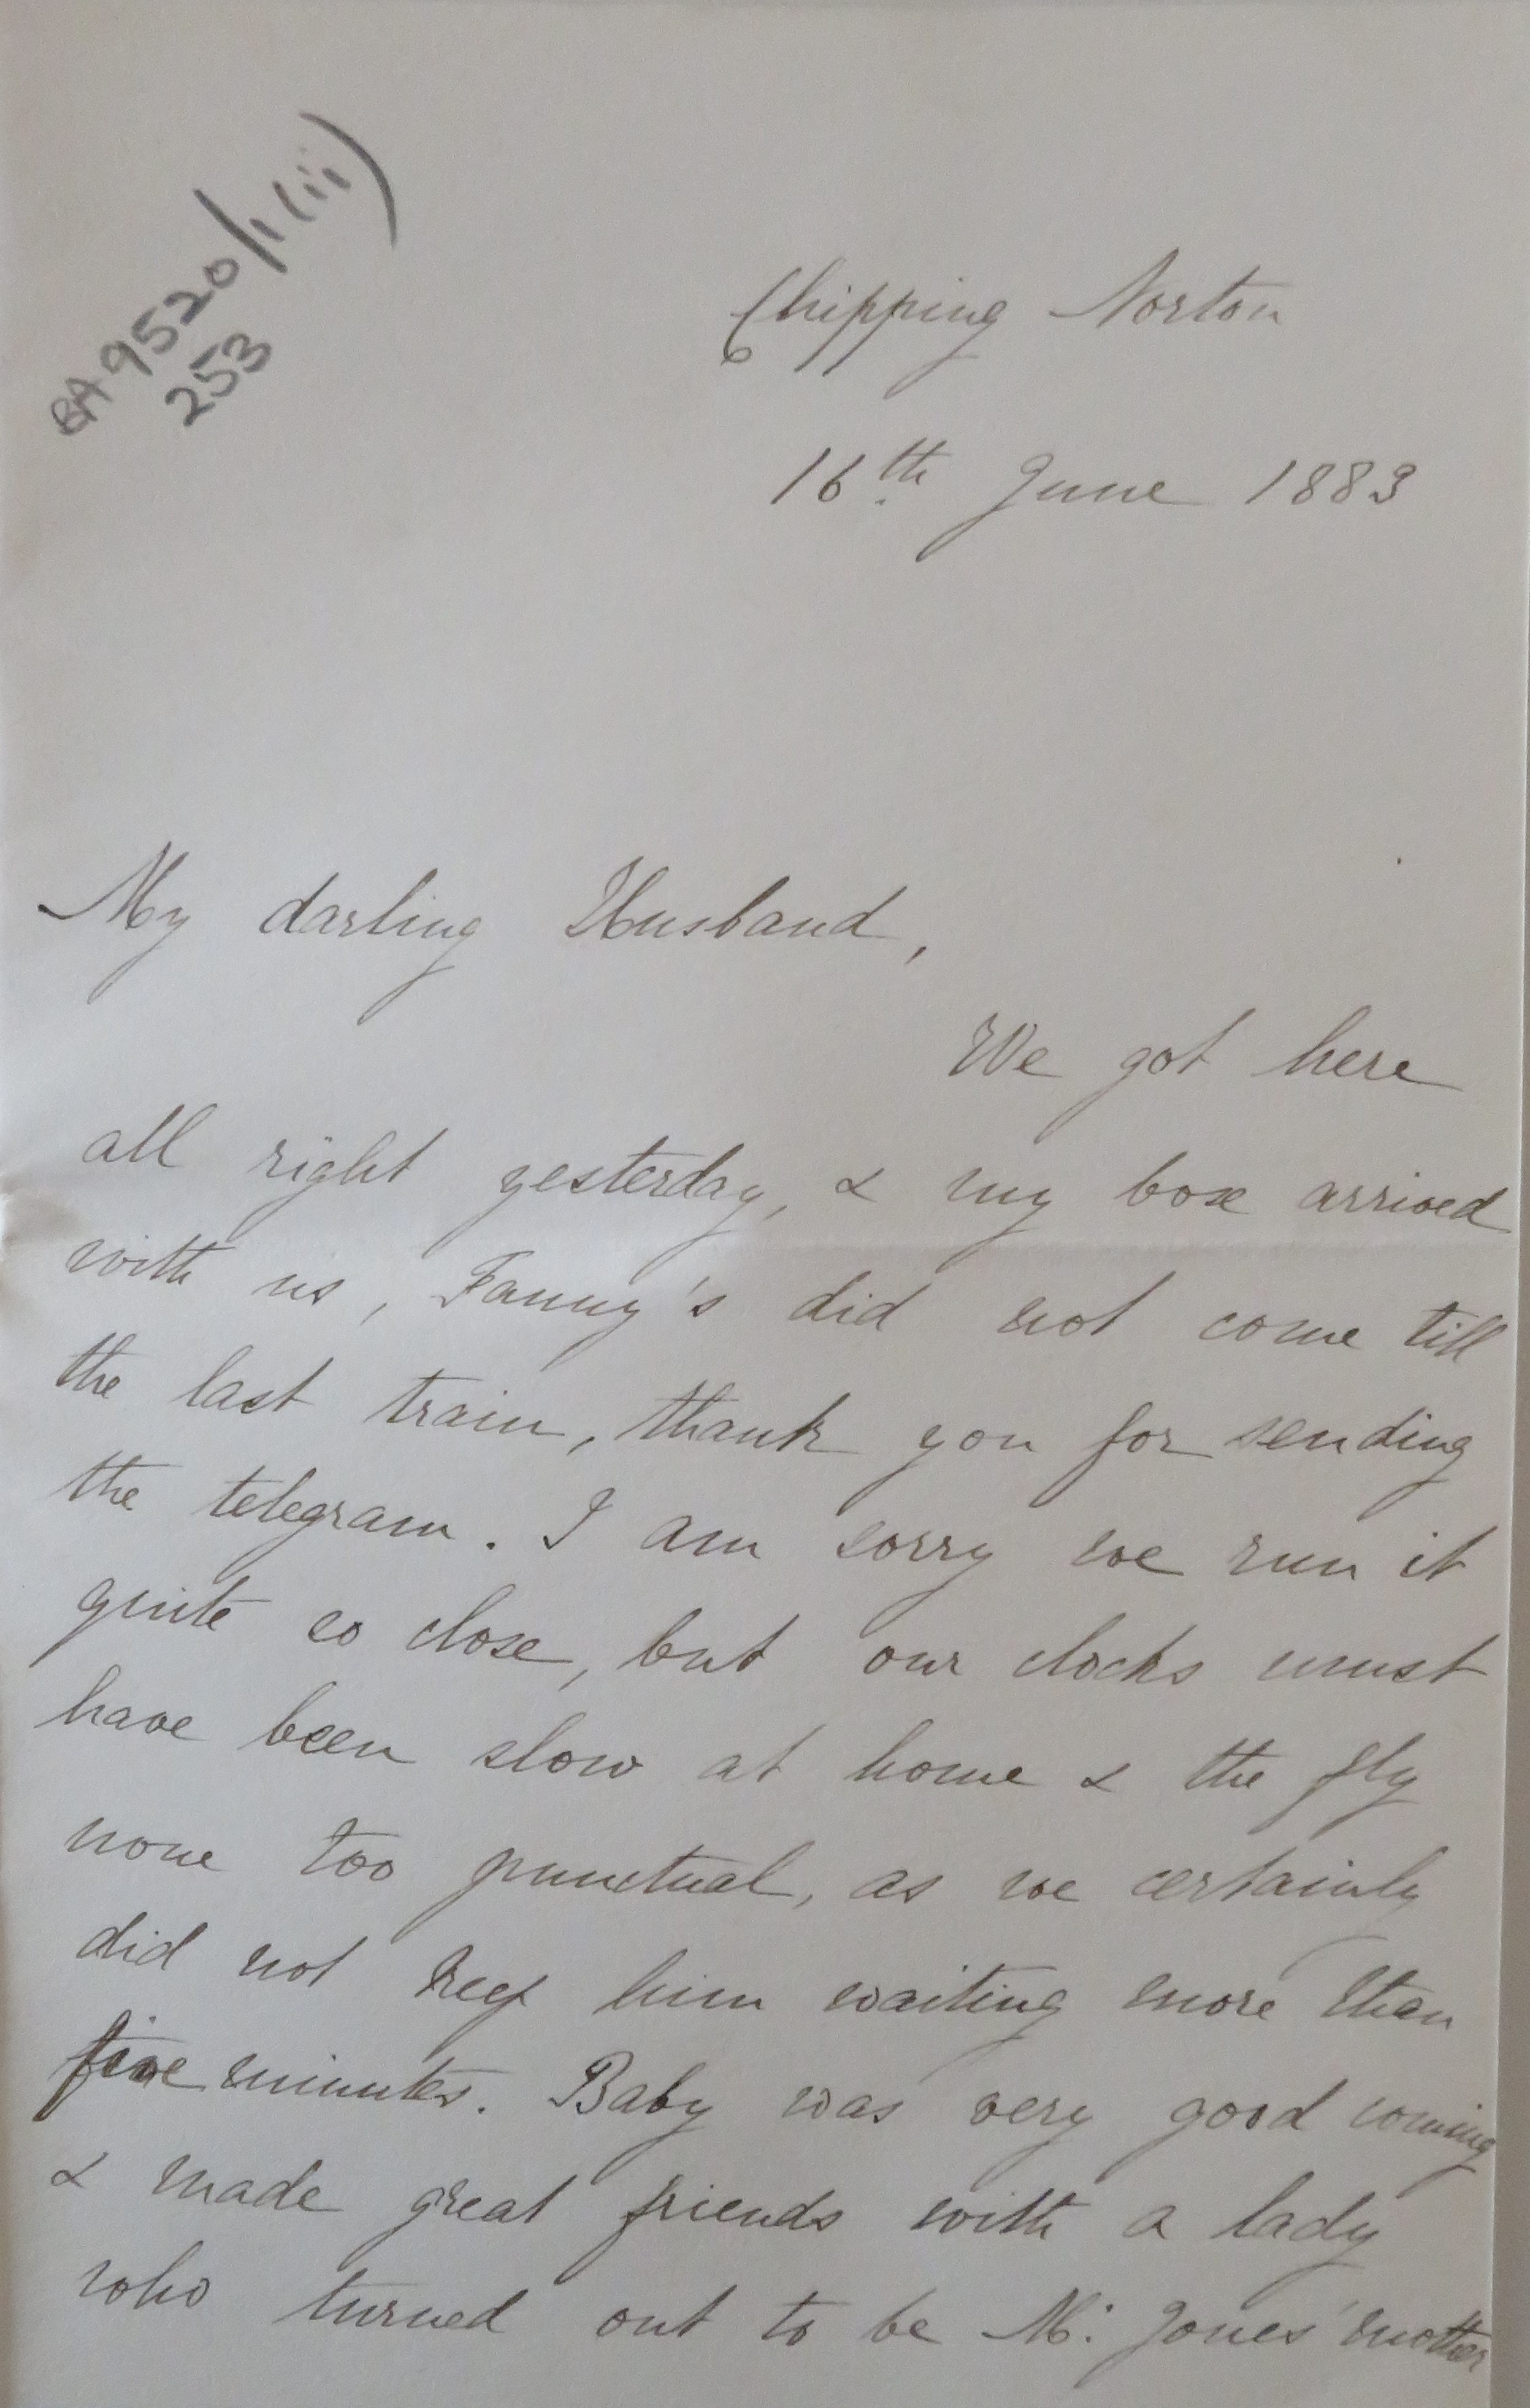 BA 9520/1(iii)
253
Chipping Norton
16th June 1883
My darling Husband,
We got here
all right yesterday, & my box arrived
with us, Fanny's did not come till
the last train, thank you for sending
the telegram. I am sorry we run it
quite so close, but our clocks must
have been slow at home & the fly
none too punctual, as we certainly
did not keep him waiting more than
five minutes. Baby was very good coming
& made great friends with a lady
who turned out to be Mr. Jones' mother